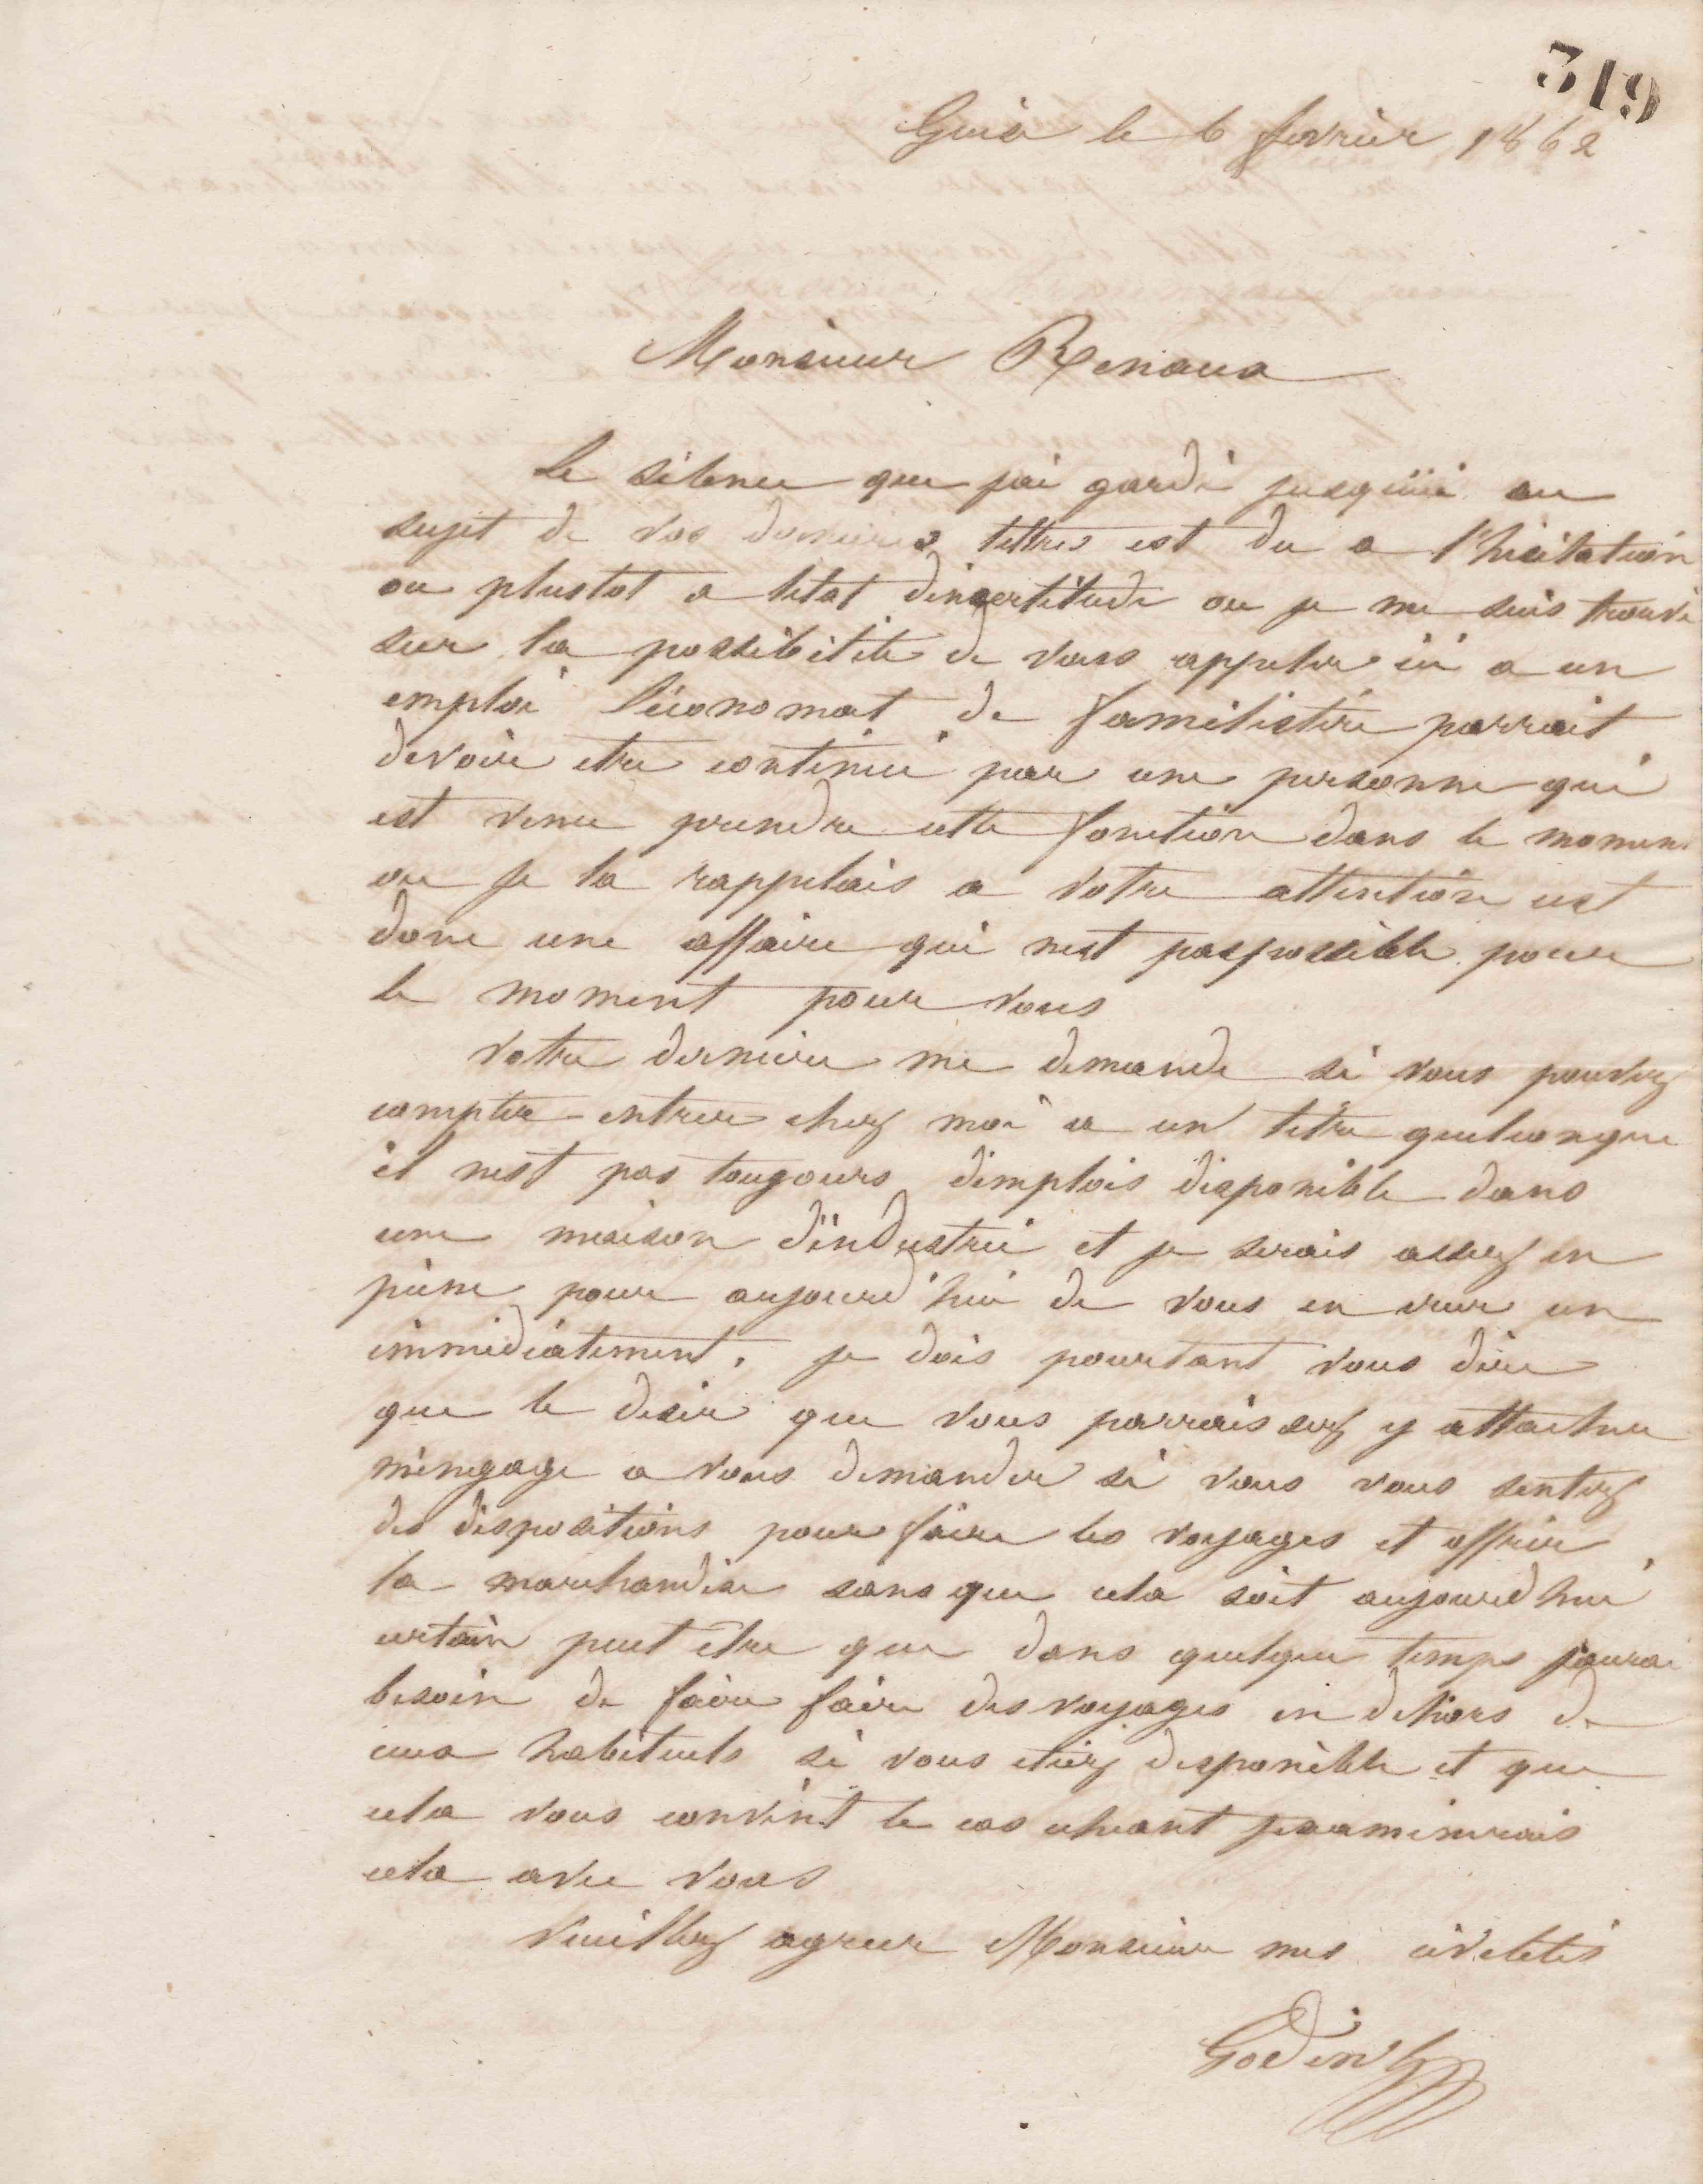 319
Guise le 6 fevrier 1862
Monsieur Renaux
Le silence que jai gardé jusquici au
sujet de vos dernieres lettres est du a l'hésitation
ou plustot a letat dincertitude ou je me suis trouvé
sur la possibilite de vous appeler ici a un
emploi l'économat de familistère parrait
devoir etre continué par une personne qui
est venue prendre cette fonction dans le moment
ou je la rappelais a votre attention cest
donc une affaire qui nest pas possible pour
le moment pour vous
Votre derniere me demande si vous pouvez
compter entrer chez moi a un titre quelconque
il nest pas tougours demplois disponible dans
une maison d'industrie et je serais assez en
peine pour aujourd'hui de vous en creer un
immédiatement. je dois pourtant vous dire
que le desir que vous parraissez y attacher
m'engage a vous demander si vous vous sentez
des dispositions pour faire les voyages et offrir
la marchandise sans que cela soit aujourdhui
certain peut être que dans quelque temps jaurai
besoin de faire faire des voyages en dehors de
ceux habituels si vous etiez disponible et que
cela vous convint le cas echeant jexaminerais
cela avec vous
Veuillez agreer Monsieur mes civilités
Godin